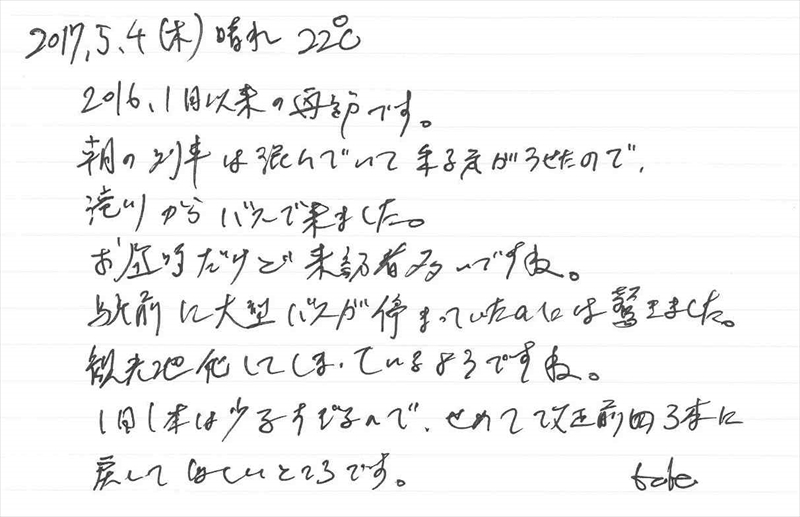 2017.5.4(木)晴れ 22℃
2016.1月以来の再訪です。
朝の列車は混んでいて 年度がうせたので、
滝川からバスで来ました。
お昼時だけど来訪者多いですね。
駅前に大型バスが停まっていたのには驚きました。
観光地化してしまっているようですね。
1日1本は少なすぎるので、せめて改正前の3本に
戻してほしいところです。